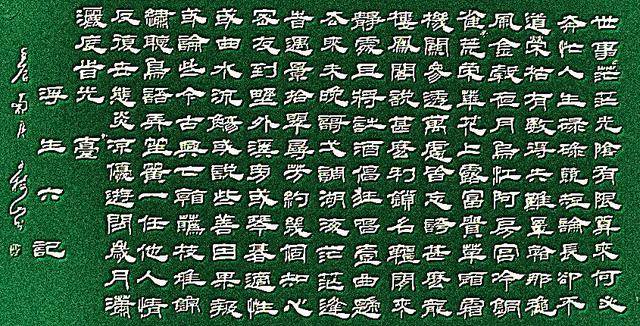 世事茫茫光陰有限算來何必
奔忙人生碌碌競短論長卻不
道榮枯有數得失難量看那秋
風金穀夜月烏江阿房宮冷銅
雀荒榮華花上露富貴草頭霜
機關參透萬慮皆忘誇甚麼龍
樓鳳閣說甚麼利鎖名韁閒來
靜處且將詩酒倡狂唱壹曲歸
去來未晚謌弌調湖海茫茫逢
時遇景拾翠尋芳約幾個知心
密友到野外溪旁或琴棋適性
或曲水流觴或說些善因果報
或論些今古興亡看花枝堆錦
繡聽鳥語弄笙簧一任他人情
反復世態炎涼優遊閒歲月瀟
灑度時光 臺
浮生六記